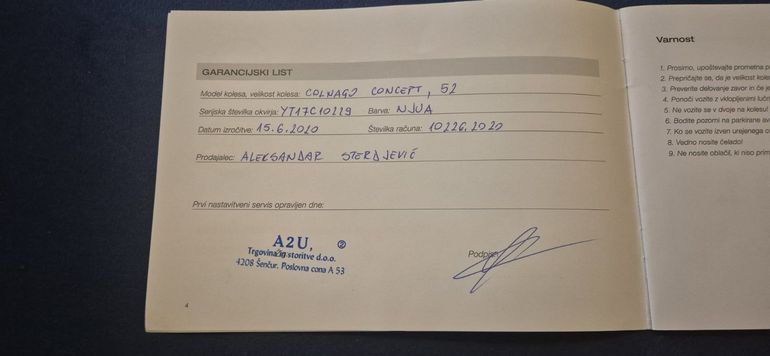 GARANCIJSKI LIST
Model kolesa, velikost kolesa: COLNAGO CONCEPT, 52
Serijska številka okvirja: YT17C10229 Barva: NJUA
Datum izročitve: 15.6.2020 Številka računa: 10226.2020
Prodajalec: ALEKSANDAR STERDJEVIĆ
Prvi nastavitveni servis opravljen dne:
A2U, 2
Trgovina in storitve d.o.o.
4208 Šenčur, Poslovna cona A 53
Podpis:
4
Varnost
1. Prosimo, upoštevajte prometna p
2. Prepričajte se, da je velikost kole
3. Preverite delovanje zavor in če je
4. Ponoči vozite z vklopljenimi luči
5. Ne vozite se v dvoje na kolesu!
6. Bodite pozorni na parkirane av
7. Ko se vozite izven urejenega o
8. Vedno nosite čelado!
9. Ne nosite oblačil, ki niso prim